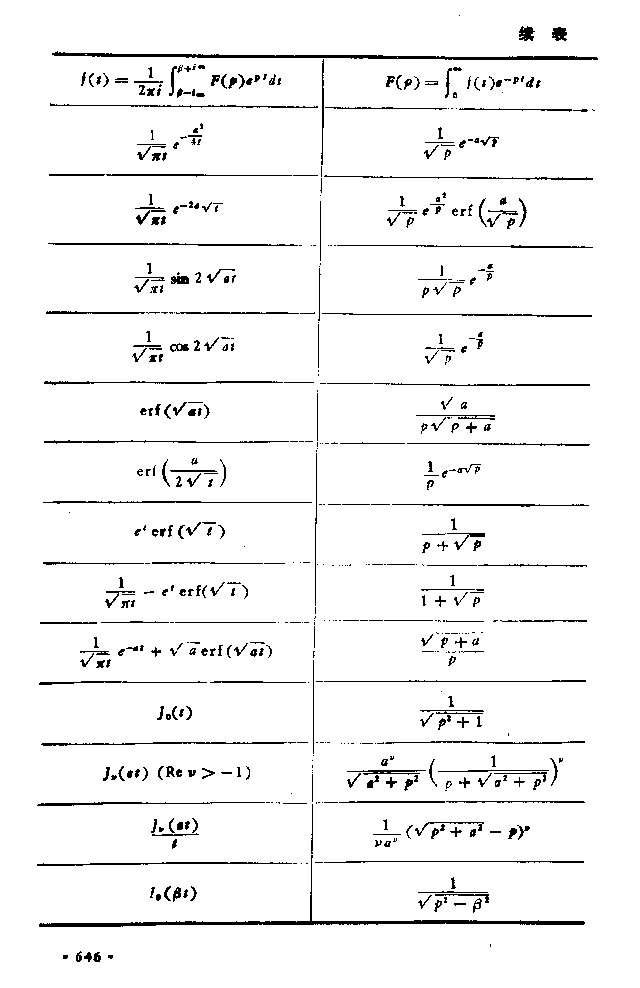 续 表
f(t) = \frac{1}{2\pi i} \int_{\beta-i\infty}^{\beta+i\infty} F(p)e^{pt}dt    F(p) = \int_{0}^{\infty} f(t)e^{-pt}dt
\frac{1}{\sqrt{\pi t}} e^{-\frac{a^2}{4t}}    \frac{1}{\sqrt{p}} e^{-a\sqrt{p}}
\frac{1}{\sqrt{\pi t}} e^{-2a\sqrt{t}}    \frac{1}{\sqrt{p}} e^{\frac{a^2}{p}} erf(\frac{a}{\sqrt{p}})
\frac{1}{\sqrt{\pi t}} sin 2\sqrt{at}    \frac{1}{p\sqrt{p}} e^{-\frac{a}{p}}
\frac{1}{\sqrt{\pi t}} cos 2\sqrt{at}    \frac{1}{\sqrt{p}} e^{-\frac{a}{p}}
erf(\sqrt{at})    \frac{\sqrt{a}}{p\sqrt{p+a}}
erf(\frac{a}{2\sqrt{t}})    \frac{1}{p} e^{-a\sqrt{p}}
e^t erf(\sqrt{t})    \frac{1}{p+\sqrt{p}}
\frac{1}{\sqrt{\pi t}} - e^t erf(\sqrt{t})    \frac{1}{1+\sqrt{p}}
\frac{1}{\sqrt{\pi t}} e^{-at} + \sqrt{a} erf(\sqrt{at})    \frac{\sqrt{p+a}}{p}
J_0(t)    \frac{1}{\sqrt{p^2+1}}
J_ν(at) (Re ν > -1)    \frac{a^ν}{\sqrt{a^2+p^2}} (\frac{1}{p+\sqrt{a^2+p^2}})^ν
\frac{J_ν(at)}{t}    \frac{1}{νa^ν} (\sqrt{p^2+a^2} - p)^ν
I_0(βt)    \frac{1}{\sqrt{p^2-β^2}}
• 646 •